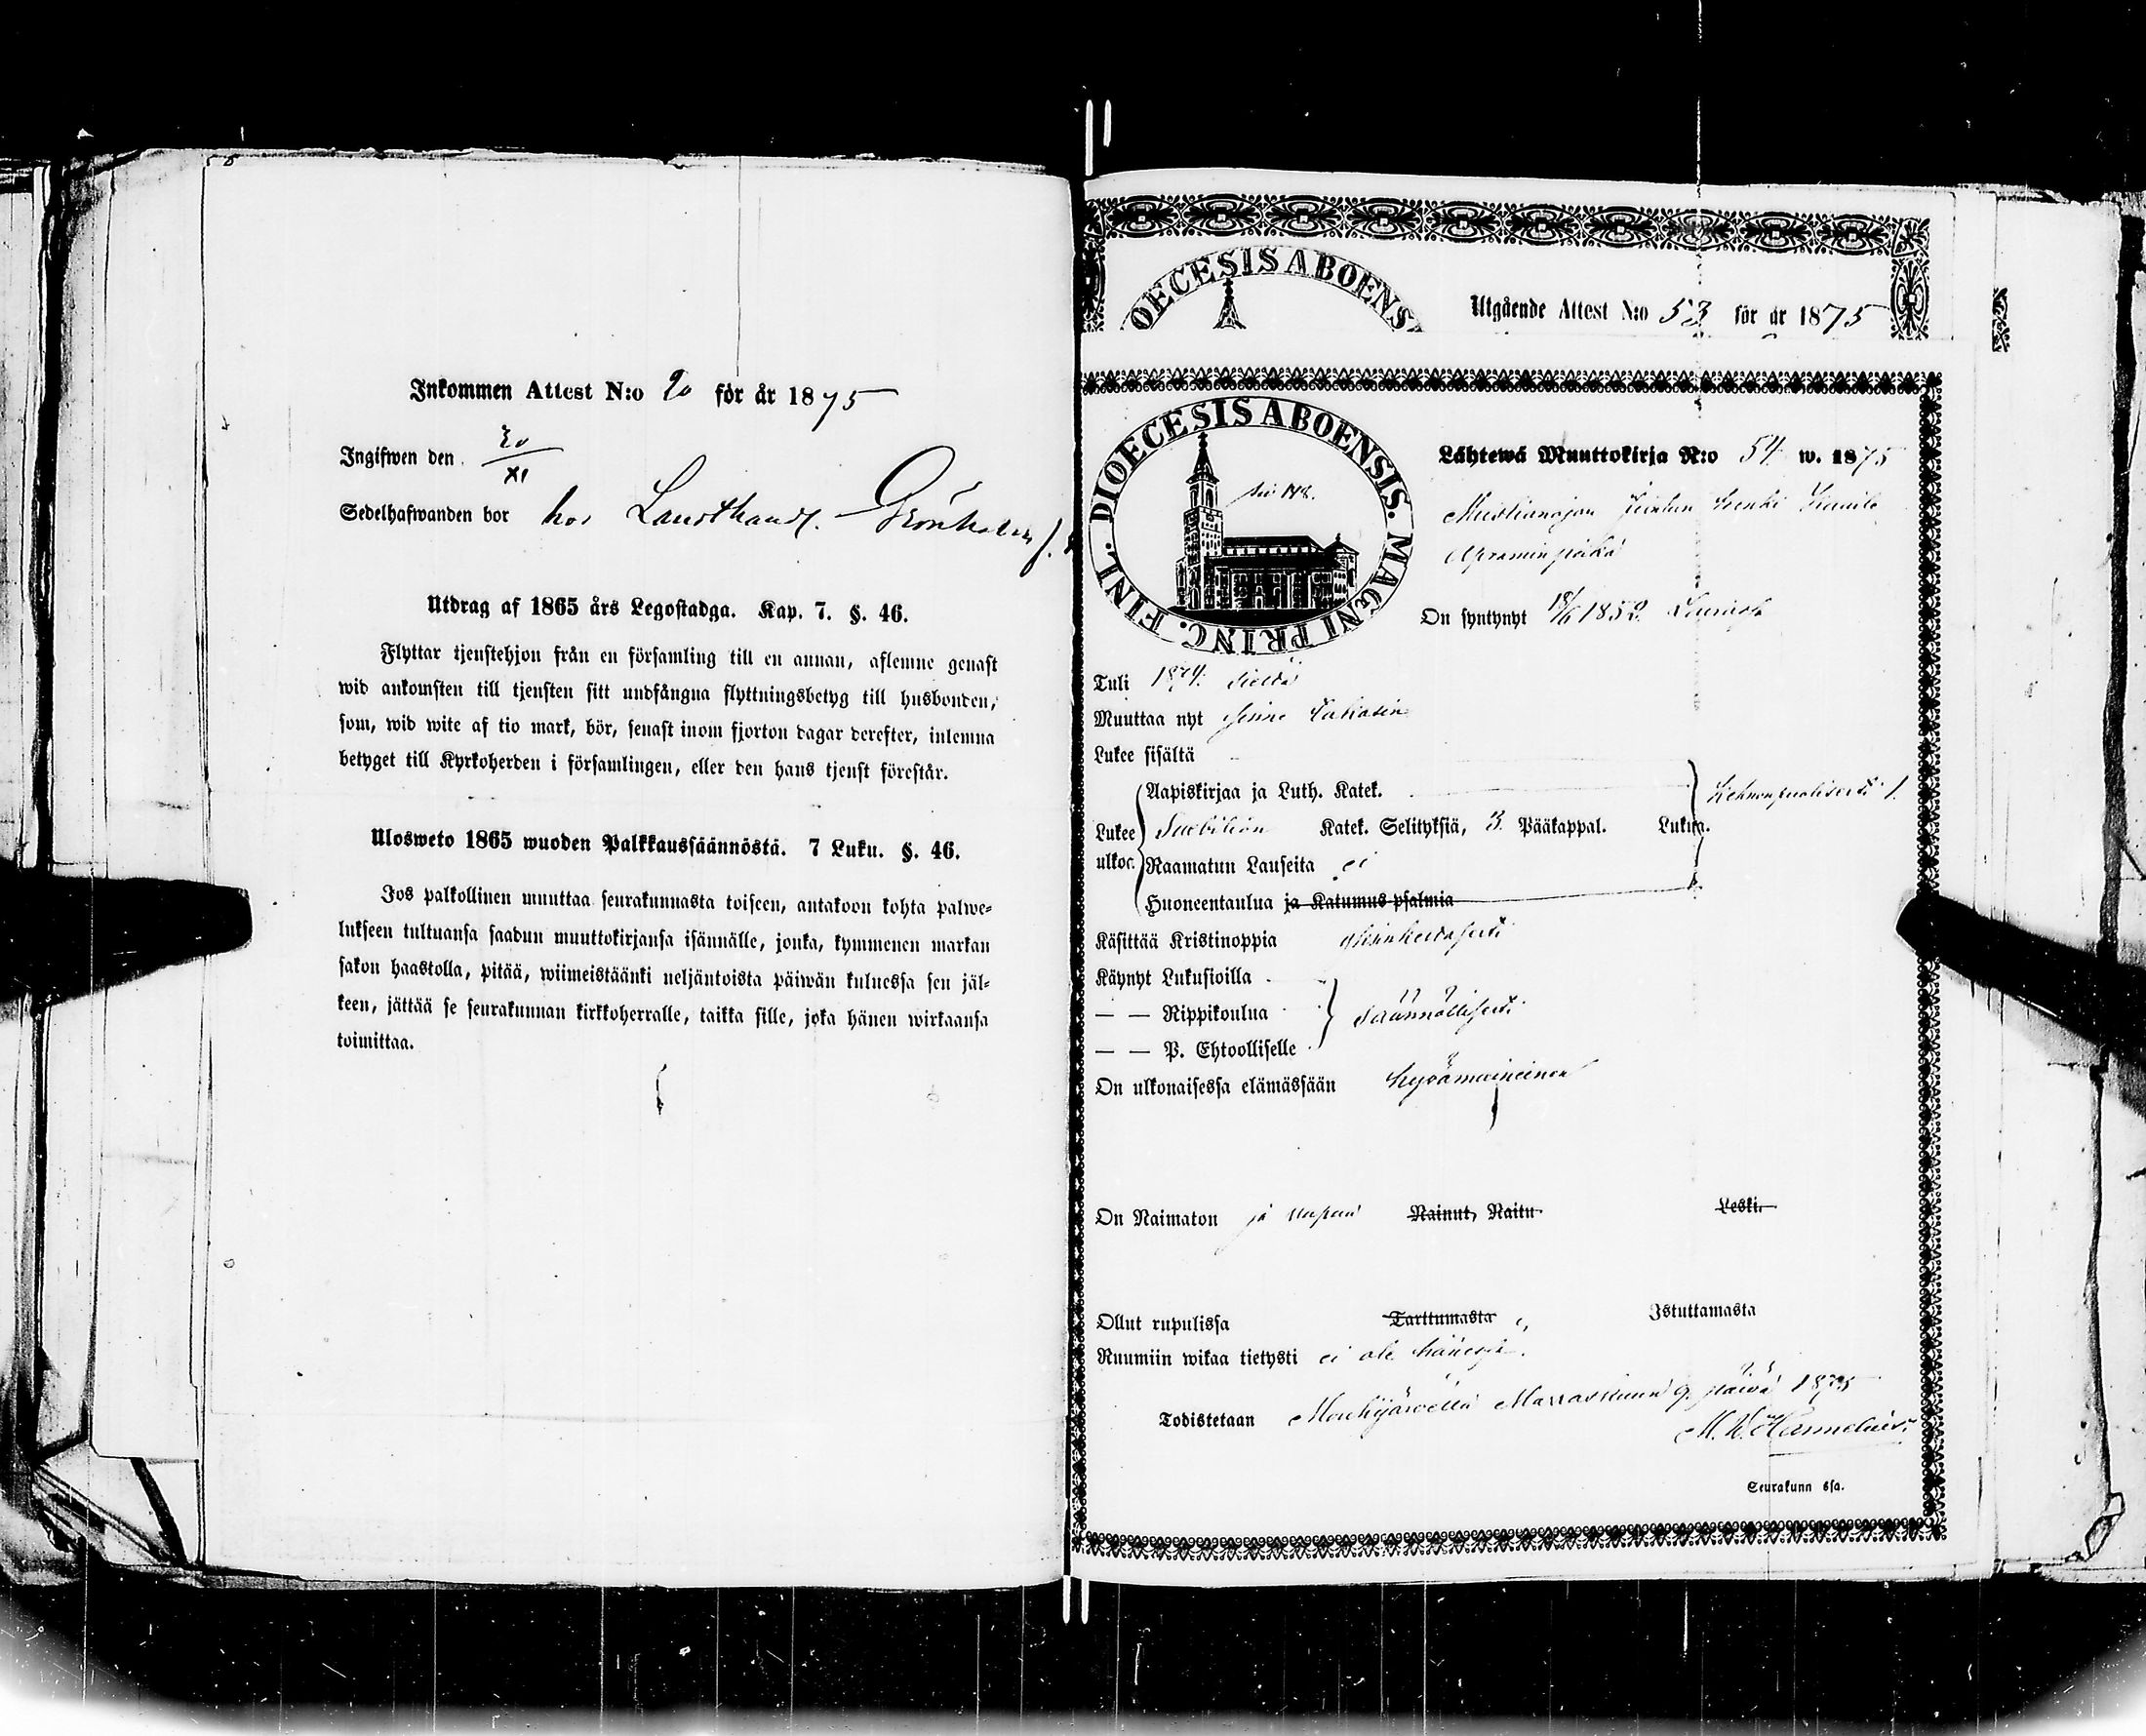 Inkommen Attest N:o 20 för år 1875
Ingifwen den 20/XI
Sedelhafwanden bor hos Landthandl. Grönholm
Utdrag af 1865 års Legostadga. Kap. 7. §. 46.
Flyttar tjenstehjon från en församling till en annan, aflemne genast
wid ankomsten till tjensten sitt undfångna flyttningsbetyg till husbonden,
som, wid wite af tio mark, bör, senast inom fjorton dagar derefter, inlemna
betyget till Kyrkoherden i församlingen, eller den hans tjenst förestår.
Ulosweto 1865 wuoden Palkkaussäännöstä. 7 Luku. §. 46.
Jos palkollinen muuttaa seurakunnasta toiseen, antakoon kohta palwe-
lukseen tultuansa saadun muuttokirjansa isännälle, jonka, kymmenen markan
sakon haastolla, pitää, wiimeistäänki neljäntoista päiwän kuluessa sen jäl-
keen, jättää se seurakunnan kirkkoherralle, taikka sille, joka hänen wirkaansa
toimittaa.
OECESIS ABOENS
Utgående Attest N:o 53 för år 1875
DIOECESIS ABOENSIS. MAGNI PRINC. FINL.
Lähtewä Muuttokirja N:o 54 w. 1875
On syntynyt 1852
Tuli 1874
Muuttaa nyt
Lukee sisältä
Aapiskirjaa ja Luth. Katek.
Lukee ulkoa. Katek. Selityksiä, 3 Pääkappal. Lukua.
Raamatun Lauseita ei
Huoneentaulua ja Katumus-psalmia
Käsittää Kristinoppia yksinkertaisesti
Käynyt Lukusioilla
— — Rippikoulua säännöllisesti
— — P. Ehtoolliselle
On ulkonaisessa elämässään hyvämaineinen
On Naimaton ja vapaa Nainut, Naitu Leski.
Ollut rupulissa Tarttumasta Istuttamasta
Ruumiin wikaa tietysti ei ole hänessä.
Todistetaan Mouhijärvellä Marraskuun 9 päivä 1875
M. W. Hannelius.
Seurakunn ssa.